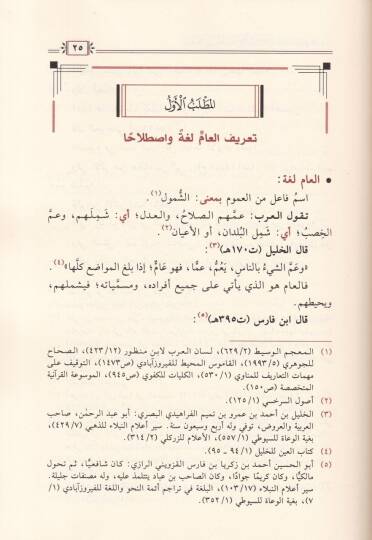 ٢٥
المطلب الأول
تعريف العامِّ لغةً واصطلاحًا
• العام لغة:
اسمُ فاعل من العموم بمعنى: الشُّمول(١).
تقول العرب: عمَّهم الصلاحُ، والعدل؛ أي: شَمِلَهم، وعمَّ
الخِصبُ؛ أي: شَمِل البُلدان، أو الأعيان(٢).
قال الخليل (ت١٧٠هـ)(٣):
«وعَمَّ الشيءُ بالناسِ، يَعُمُّ، عمًّا، فهو عَامٌّ؛ إذا بلغ المواضع كلَّها»(٤).
فالعام هو الذي يأتي على جميع أفراده، ومسمَّياته؛ فيشملهم،
ويحيطهم.
قال ابن فارس (ت٣٩٥هـ)(٥):
(١) المعجم الوسيط (٦٢٩/٢)، لسان العرب لابن منظور (٤٢٣/١٢)، الصحاح
للجوهري (١٩٩٣/٥)، القاموس المحيط للفيروزآبادي (ص١٤٧٣)، التوقيف على
مهمات التعاريف للمناوي (٥٣٠/١)، الكليات للكفوي (ص٩٤٥)، الموسوعة القرآنية
المتخصصة (ص١٥٠).
(٢) أصول السرخسي (١٢٥/١).
(٣) الخليل بن أحمد بن عمرو بن تميم الفراهيدي البصري: أبو عبد الرحمٰن، صاحب
العربية والعروض، توفي وله أربع وسبعون سنة. سير أعلام النبلاء للذهبي (٤٢٩/٧)،
بغية الوعاة للسيوطي (٥٥٧/١)، الأعلام للزركلي (٣١٤/٢).
(٤) كتاب العين للخليل (٩٤/١ ـ ٩٥).
(٥) أبو الحسين أحمد بن زكريا بن فارس القزويني الرازي: كان شافعيًّا، ثم تحول
مالكيًّا، وكان كريمًا جوادًا، وكان الصاحب بن عباد يتتلمذ عليه، وله مصنفات جليلة.
سير أعلام النبلاء (١٠٣/١٧)، البلغة في تراجم أئمة النحو واللغة للفيروزآبادي (١/
٧)، بغية الوعاة للسيوطي (٣٥٢/١).